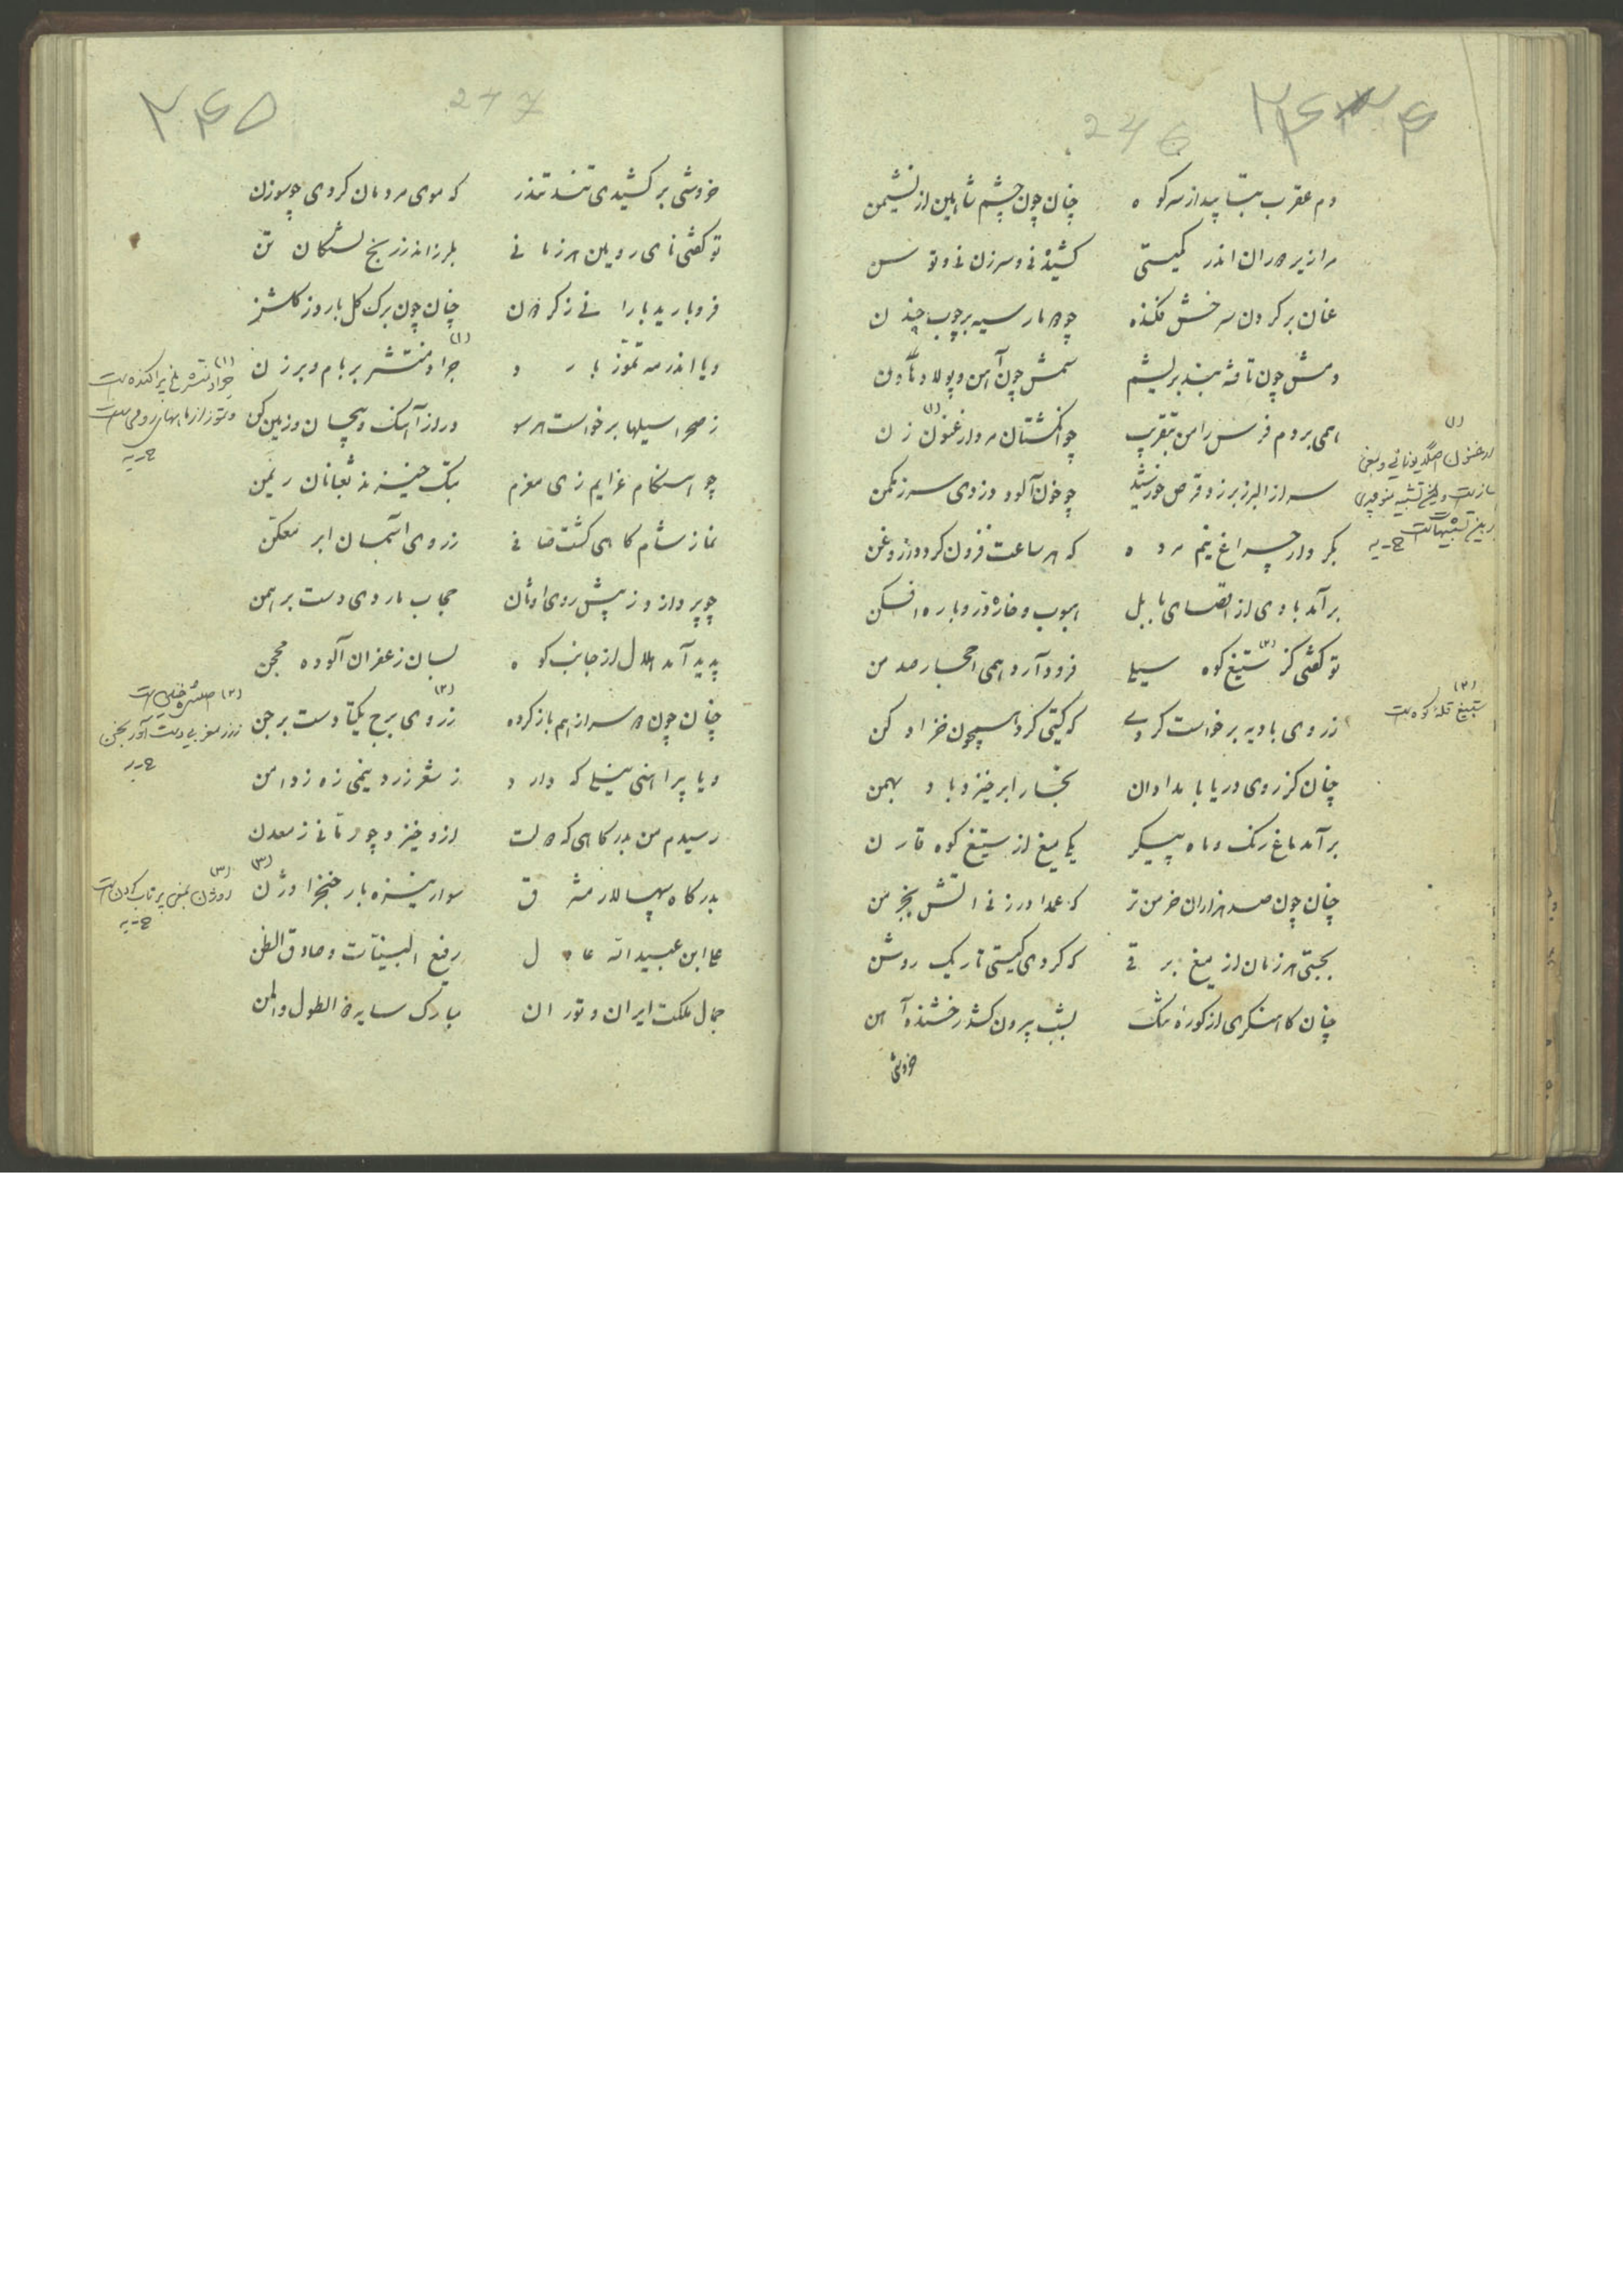 ۲۴۶
246
دم عقرب بتابید از سر کوه چنان چون چشم شاهین از نشیمن
مرا زیر ران اندر کمیتی کشنده نی و سرزن نی و توسن
عنان بر گردن سرخش فکنده چو مار سیه بر چوب چندن
دمش چون تافته بند بریشم سمش چون آهن و پولاد هاون
همی بردم فرس را من بتقریب چو انگشتان مرد ارغنون زن (۱)
سر از البرز بر زد قرص خورشید چو خون آلود دزدی سر ز مکمن
بکردار چراغ نیم مرده که هر ساعت فزون گردد ز روغن
برآمد بادی از اقصای بابل هبوب و خاره در و باره افکن
تو گفتی کز ستیغ کوه سیلی (۲) فرود آرد همی احجار صد من
ز روی بادیه برخواست گردی که گیتی کرد همچون خز ادکن
چنان کز روی دریا بامدادان بخار ابر خیزد باد بهمن
برآمد باغ رنک و ماه پیکر یکی میغ از ستیغ کوه قارن
چنان چون صد هزاران خرمن تر که عمدا در زنی آتش بخرمن
بجستی هر زمان از میغ برقی که کردی گیتی تاریک روشن
چنان کاهنگری از کوره تنگ بشب بیرون کشد رخشنده آهن
خروشی
(۱)
ارغنون
(۲)
ستیغ قله کوه است
۲۴۵
247
خروشی بر کشیدی تند تندر که موی مردمان کردی چو سوزن
تو گفتی نای روئین هر زمانی بلرزاندر ز بیخ لشکان تن
فرو بارید بارانی ز گردون چنان چون برگ گل بارد ز گلشن
و یا اندر مه تموز بارد جراد منتشر بر بام و برزن (۱)
ز صحرا سیلها برخواست هر سو دراز آهنگ و پیچان و زمین کن
چو هنگام عزایم زی معزم بتک خیزند ثعبانان ریمن
نماز شام گاهی گشت صافی ز روی آسمان ابر معکن
چو بردارد ز پیش روی اوثان حجاب ماردی دست برهمن
پدید آمد هلال از جانب کوه بسان زعفران آلوده محجن
چنان چون سر از هم باز کرده ز روی برج یکتا دست برجن (۲)
و یا پیراهنی نیلی که دارد ز شعر زرد نیمی زه ز دامن
رسیدم من بدرگاهی که دولت ازو خیزد چو رمانی ز معدن
بدرگاه سپهسالار مشرق سوار نیزه باز خنجر اوژن (۳)
علی ابن عبید الله عادل رفیع البینات و صادق الظن
جمال ملکت ایران و توران مبارک سایه ذو الطول و المن
(۱)
جراد منتشر ملخ پراکنده است
(۲)
(۳)
اوژن بمعنی پرتاب کردن است